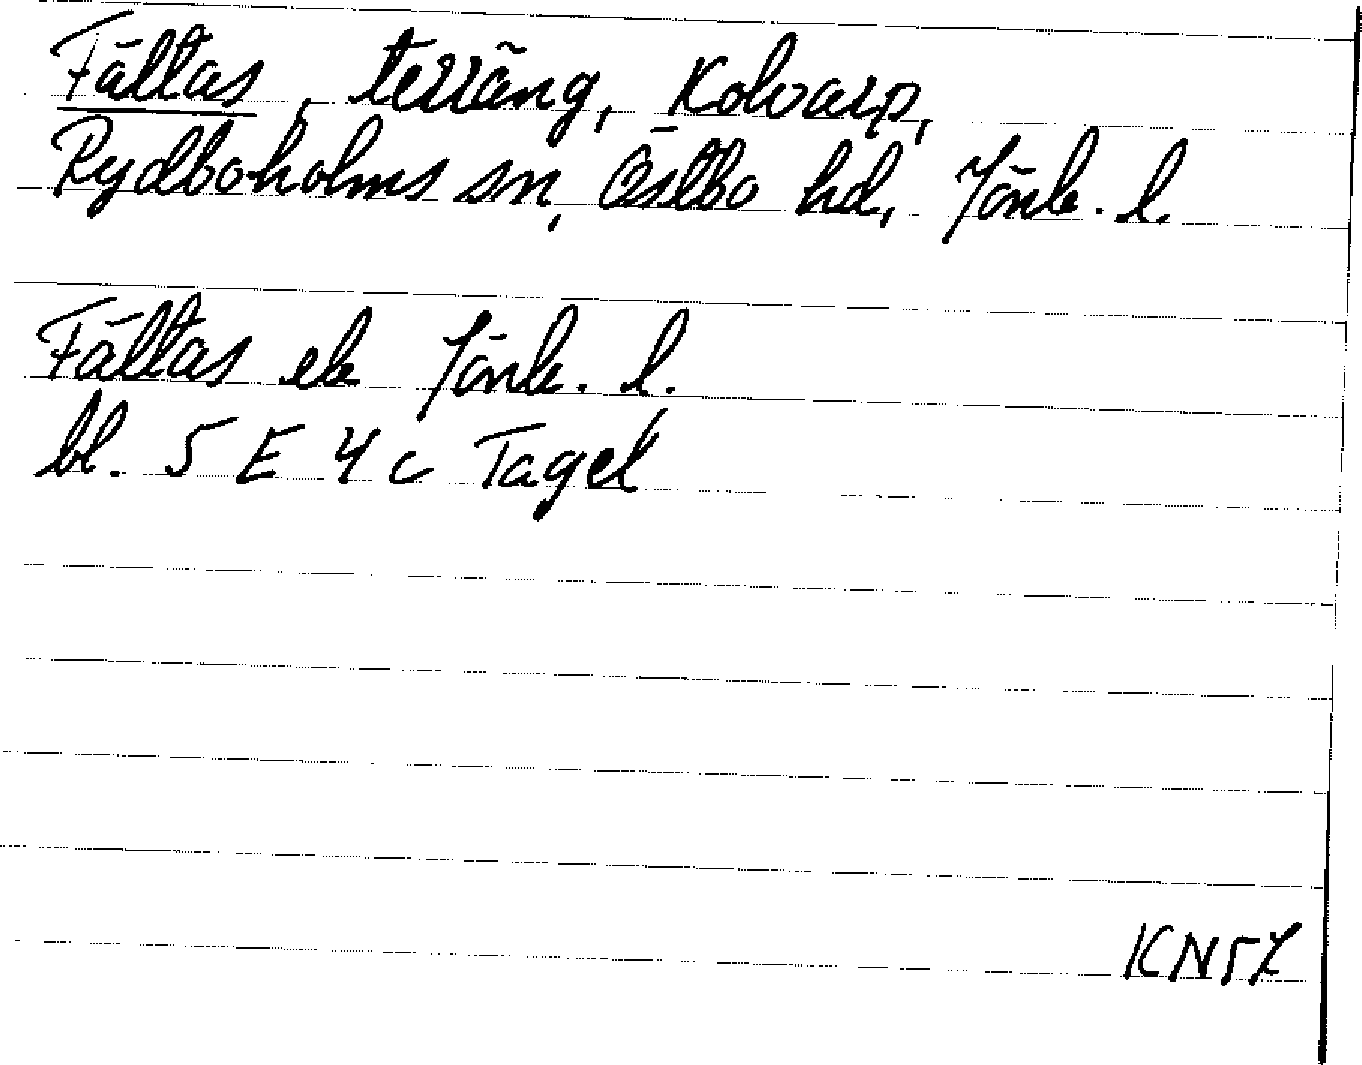 Fältas, terräng, Kolvarp,
Rydboholms sn, Östbo hd, Jönk. l.
Fältas ek Jönk. l.
bl. 5 E 4 c Tagel